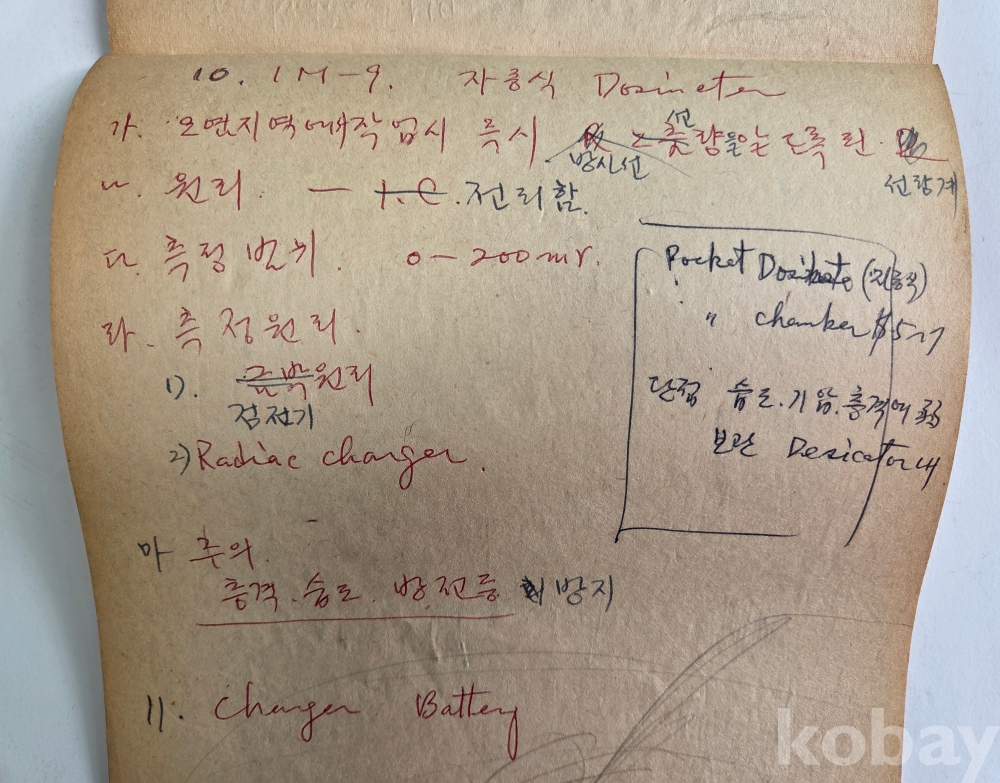 10. IM-9. 자응식 Dosimeter
가. 오염지역에서 작업시 즉시 방사선 선량을 읽는 도록 된 선량계
나. 원리. — I.C. 전리함.
다. 측정범위. 0-200mr.
라. 측정원리.
1). 금박원리
검전기
2) Radiac charger.
마 주의.
충격. 습도. 방전등 방지
11. Charger Battery
Pocket (자응식)
〃 chamber 5~7
단점 습도. 기압. 충격에 弱
보관 Desicator내
kobay